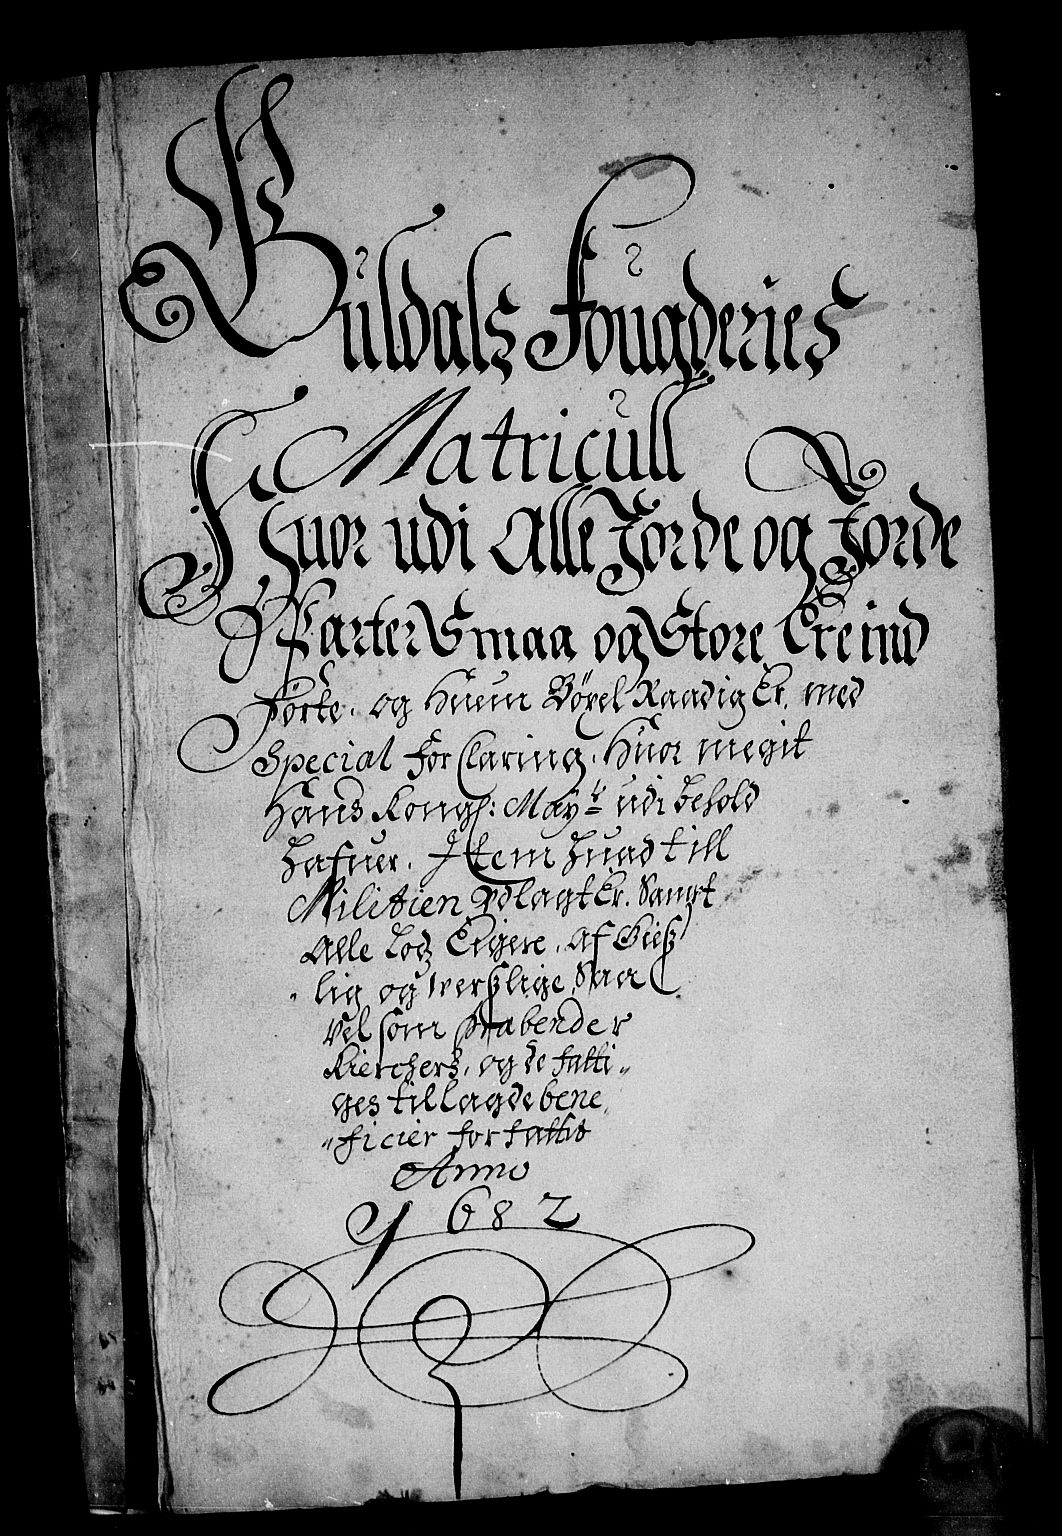 Guldals Fougderies
Matricull
Huor udi Alle Jorde og Jorde
Parter Smaa og Store Ere ind
førte, og Huem Böxel Raadig Er, med
Special forClaring, Huor megit
Hans Kongl: Mayt udi behold
hafuer, Item huad till
Militien udlagt Er, Sampt
Alle Lodz Eigere, af Giest
lig og werslige, Saa
vel som Præbender
Kierchers, og de fatti„
ges tillagde bene
„ficier forfattit
Anno
1682